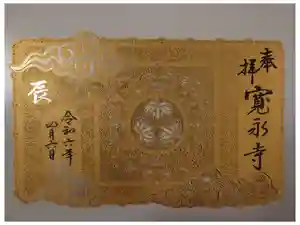 奉拝
寛永寺
辰
令和六年
四月六日